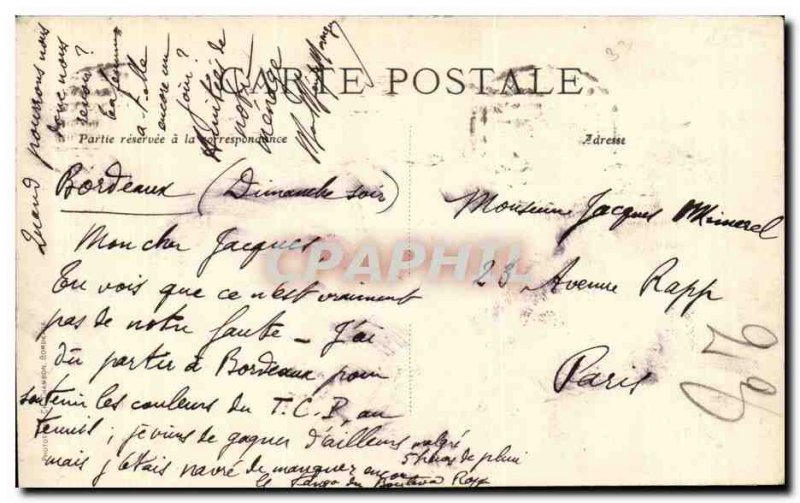 CARTE POSTALE
Partie réservée à la correspondance
Adresse
Bordeaux (Dimanche soir)
Mon cher Jacques
Tu vois que ce n'est vraiment
pas de notre faute – J'ai
dû partir à Bordeaux pour
soutenir les couleurs du T.C.P. au
tennis ; je viens de gagner d'ailleurs malgré
5 heures de pluie
mais j'étais navré de manquer encore
le du Rapp
Quand pourrons nous
donc nous
revoir ?
a-t-elle
encore un
jour ?
Amitiés de
notre
ménage
Monsieur Jacques Mimerel
23 Avenue Rapp
Paris
CPAPHIL